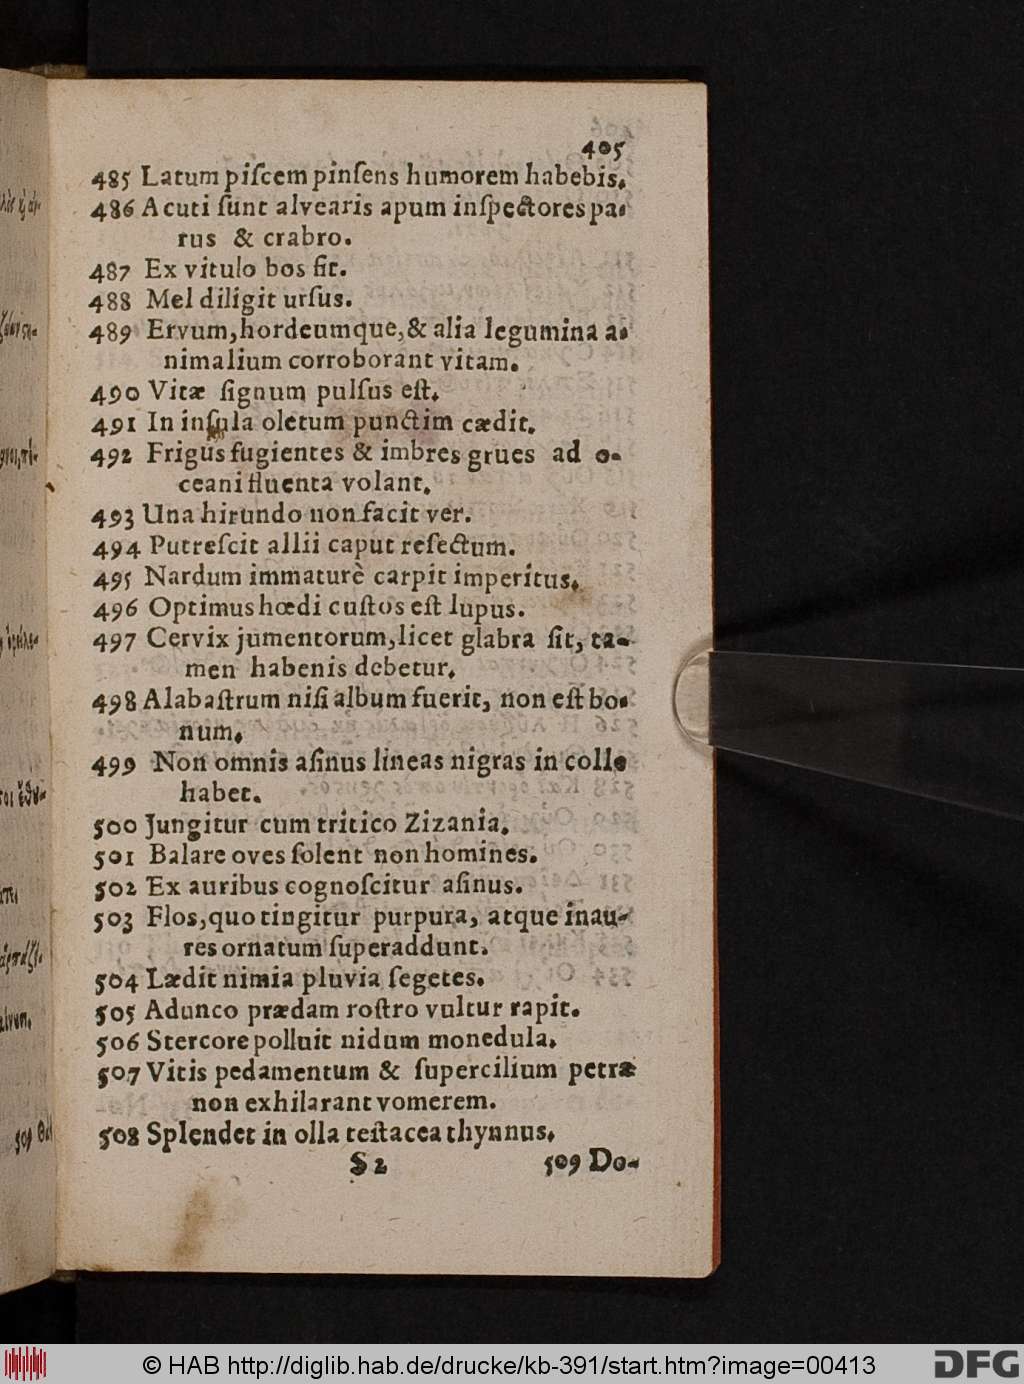 405
485 Latum piſcem pinſens humorem habebis.
486 Acuti ſunt alvearis apum inſpectores pa-
rus & crabro.
487 Ex vitulo bos fit.
488 Mel diligit urſus.
489 Ervum, hordeumque, & alia legumina a-
nimalium corroborant vitam.
490 Vitæ ſignum pulſus eſt.
491 In inſula oletum punctim cædit.
492 Frigus fugientes & imbres grues ad o-
ceani fluenta volant.
493 Una hirundo non facit ver.
494 Putreſcit allii caput reſectum.
495 Nardum immaturè carpit imperitus.
496 Optimus hœdi cuſtos eſt lupus.
497 Cervix jumentorum, licet glabra ſit, ta-
men habenis debetur.
498 Alabaſtrum niſi album fuerit, non eſt bo-
num.
499 Non omnis aſinus lineas nigras in collo
habet.
500 Jungitur cum tritico Zizania.
501 Balare oves ſolent non homines.
502 Ex auribus cognoſcitur aſinus.
503 Flos, quo tingitur purpura, atque inau-
res ornatum ſuperaddunt.
504 Lædit nimia pluvia ſegetes.
505 Adunco prædam roſtro vultur rapit.
506 Stercore polluit nidum monedula.
507 Vitis pedamentum & ſupercilium petræ
non exhilarant vomerem.
508 Splendet in olla teſtacea thynnus.
S 2 509 Do-
© HAB http://diglib.hab.de/drucke/kb-391/start.htm?image=00413
DFG